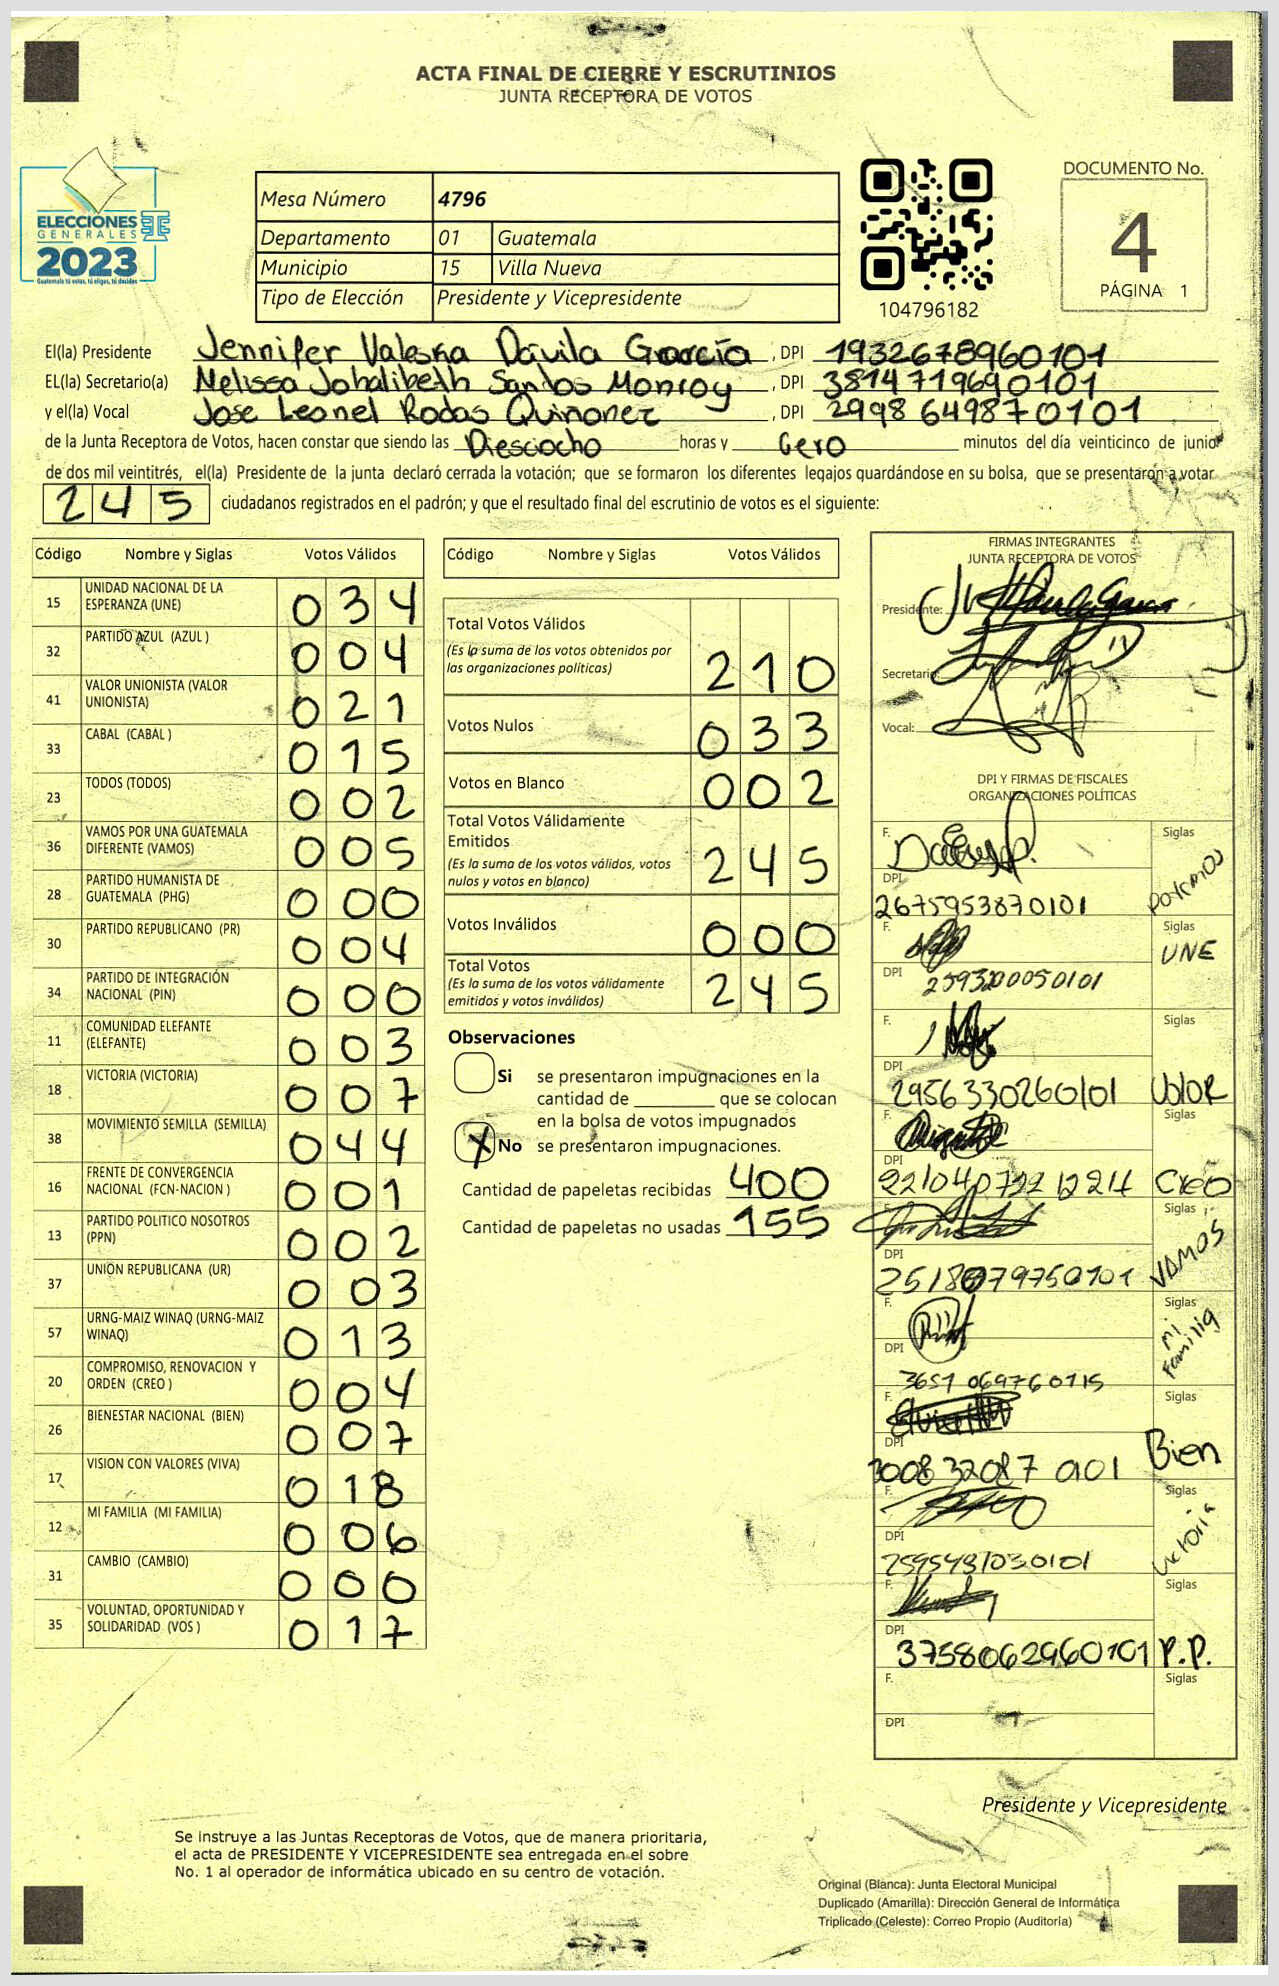 ACTA FINAL DE CIERRE Y ESCRUTINIOS
JUNTA RECEPTORA DE VOTOS
ELECCIONES
GENERALES
2023
Guatemala tú votas, tú eliges, tú decides
Mesa Número 4796
Departamento 01 Guatemala
Municipio 15 Villa Nueva
Tipo de Elección Presidente y Vicepresidente
104796182
DOCUMENTO No.
4
PÁGINA 1
El(la) Presidente Jennifer Valeska Dávila García, DPI 1932678960101
EL(la) Secretario(a) Melissa Johalibeth Santos Monroy, DPI 3814719690101
y el(la) Vocal Jose Leonel Rodas Quiñonez, DPI 2998649870101
de la Junta Receptora de Votos, hacen constar que siendo las Diesciocho horas y Cero minutos del día veinticinco de junio
de dos mil veintitrés, el(la) Presidente de la junta declaró cerrada la votación; que se formaron los diferentes legajos quardándose en su bolsa, que se presentaron a votar
245 ciudadanos registrados en el padrón; y que el resultado final del escrutinio de votos es el siguiente:
Código Nombre y Siglas Votos Válidos
15 UNIDAD NACIONAL DE LA ESPERANZA (UNE) 034
32 PARTIDO AZUL (AZUL ) 004
41 VALOR UNIONISTA (VALOR UNIONISTA) 021
33 CABAL (CABAL ) 015
23 TODOS (TODOS) 002
36 VAMOS POR UNA GUATEMALA DIFERENTE (VAMOS) 005
28 PARTIDO HUMANISTA DE GUATEMALA (PHG) 000
30 PARTIDO REPUBLICANO (PR) 004
34 PARTIDO DE INTEGRACIÓN NACIONAL (PIN) 000
11 COMUNIDAD ELEFANTE (ELEFANTE) 003
18 VICTORIA (VICTORIA) 007
38 MOVIMIENTO SEMILLA (SEMILLA) 044
16 FRENTE DE CONVERGENCIA NACIONAL (FCN-NACION ) 001
13 PARTIDO POLITICO NOSOTROS (PPN) 002
37 UNION REPUBLICANA (UR) 003
57 URNG-MAIZ WINAQ (URNG-MAIZ WINAQ) 013
20 COMPROMISO, RENOVACION Y ORDEN (CREO ) 004
26 BIENESTAR NACIONAL (BIEN) 007
17 VISION CON VALORES (VIVA) 018
12 MI FAMILIA (MI FAMILIA) 006
31 CAMBIO (CAMBIO) 000
35 VOLUNTAD, OPORTUNIDAD Y SOLIDARIDAD (VOS ) 017
Código Nombre y Siglas Votos Válidos
Total Votos Válidos
(Es la suma de los votos obtenidos por
las organizaciones políticas) 210
Votos Nulos 033
Votos en Blanco 002
Total Votos Válidamente
Emitidos
(Es la suma de los votos válidos, votos
nulos y votos en blanco) 245
Votos Inválidos 000
Total Votos
(Es la suma de los votos válidamente
emitidos y votos inválidos) 245
Observaciones
Si se presentaron impugnaciones en la
cantidad de ________ que se colocan
en la bolsa de votos impugnados
X No se presentaron impugnaciones.
Cantidad de papeletas recibidas 400
Cantidad de papeletas no usadas 155
FIRMAS INTEGRANTES
JUNTA RECEPTORA DE VOTOS
Presidente:
Secretario:
Vocal:
DPI Y FIRMAS DE FISCALES
ORGANIZACIONES POLÍTICAS
F. Siglas
DPI 2675953870101 Podemos
F. Siglas UNE
DPI 2593200050101
F. Siglas
DPI 2956330260101 Valor
F. Siglas
DPI Creo
F. Siglas
DPI 2518079750101 VAMOS
F. Siglas
DPI 3651069760115 Mi Familia
F. Siglas
DPI 3008320870101 Bien
F. Siglas
DPI 2595481030101 Victoria
F. Siglas
DPI 3758062960101 P.P.
F. Siglas
DPI
Presidente y Vicepresidente
Se instruye a las Juntas Receptoras de Votos, que de manera prioritaria,
el acta de PRESIDENTE Y VICEPRESIDENTE sea entregada en el sobre
No. 1 al operador de informática ubicado en su centro de votación.
Original (Blanca): Junta Electoral Municipal
Duplicado (Amarilla): Dirección General de Informática
Triplicado (Celeste): Correo Propio (Auditoría)